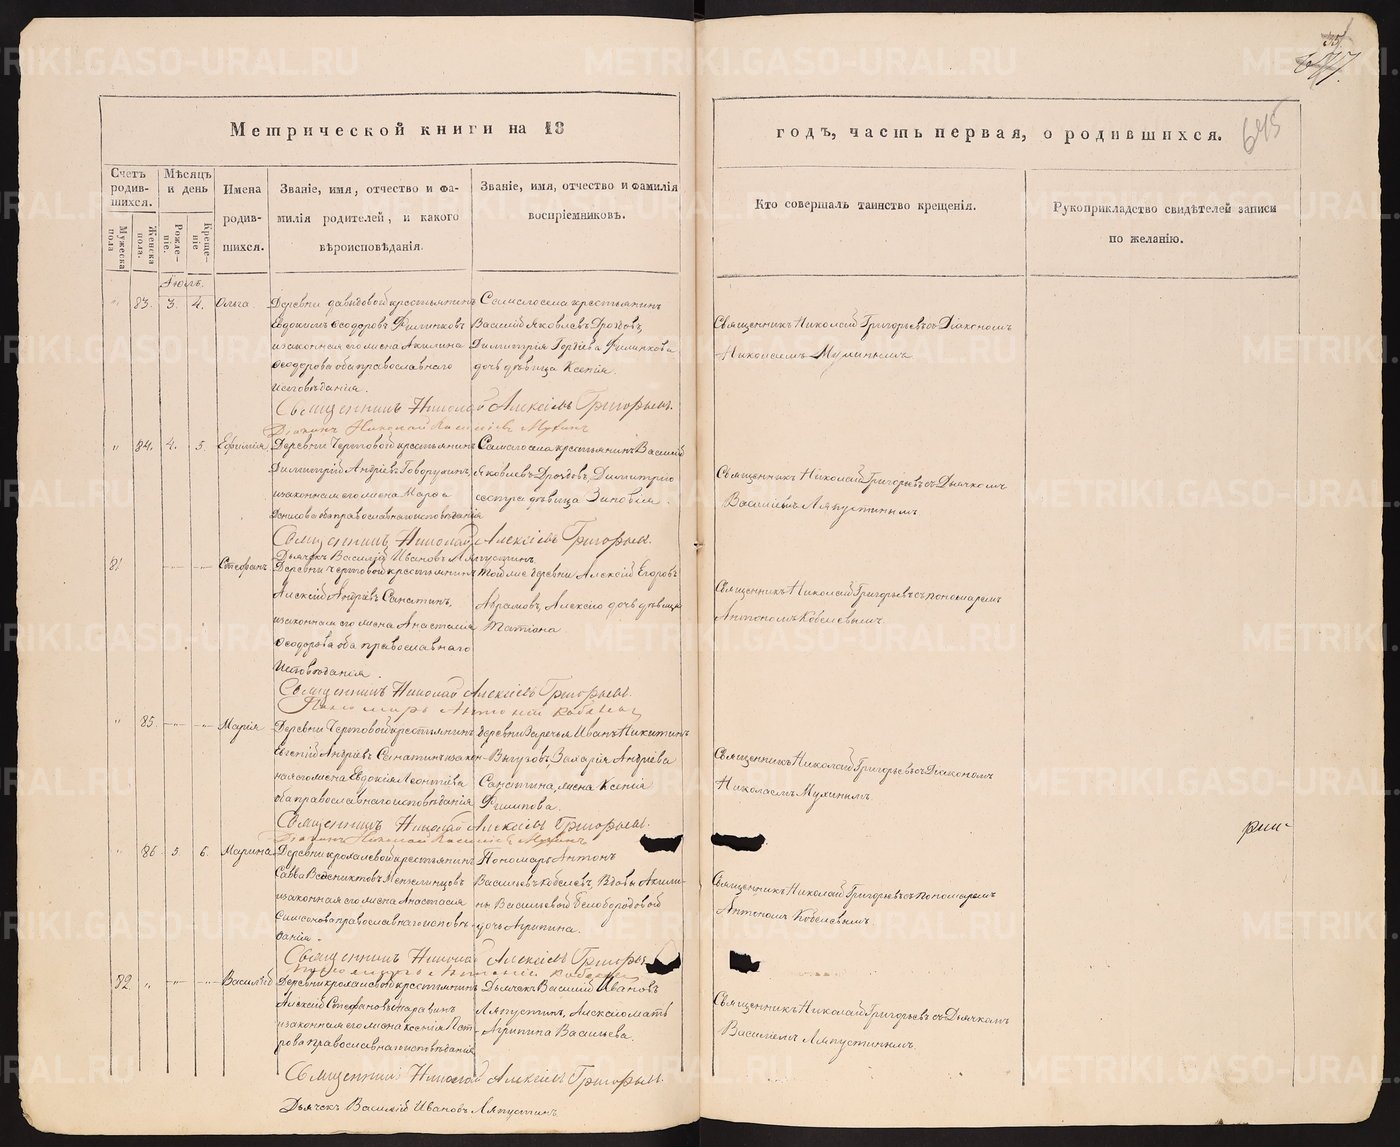 35
645
Метрической книги на 18
годъ, часть первая, о родившихся.
Счетъ родив-шихся.
Мужеска пола.
Женска пола.
Мѣсяцъ и день
Рожде-ніе.
Креще-ніе
Имена родив-шихся.
Званіе, имя, отчество и фа-
милія родителей, и какого
вѣроисповѣданія.
Званіе, имя, отчество и фамилія
воспріемниковъ.
Кто совершалъ таинство крещенія.
Рукоприкладство свидѣтелей записи
по желанію.
Іюль.
" 83. 3. 4. Ольга.
Деревни Давыдовой крестьянинъ
Евдокимъ Ѳеодоровъ Филинковъ
и законная его жена Акилина
Ѳеодорова оба православнаго
исповѣданія.
Самаго села крестьянинъ
Василій Яковлевъ Дроздовъ,
Димитрія Гордѣева Филинкова
дочь дѣвица Ксенія.
Священникъ Николай Григорьевъ съ Діакономъ
Николаемъ Мухинымъ
Священникъ Николай Алексѣевъ Григорьевъ.
Діаконъ Николай Василіевъ Мухинъ
" 84. 4. 5. Ефимія
Деревни Чертовой крестьянинъ
Димитрій Андріевъ Говорухинъ,
и законная его жена Марѳа
Денисова оба православнаго исповѣданія
Самаго села крестьянинъ Василій
Яковлевъ Дроздовъ, Димитрію
сестра дѣвица Зиновія.
Священникъ Николай Григорьевъ съ Дьячкомъ
Василіемъ Ляпустинымъ
Священникъ Николай Алексѣевъ Григорьевъ.
Дьячекъ Василій Ивановъ Ляпустинъ
81 Стефанъ.
Деревни Чертовой крестьянинъ
Алексій Андріевъ Санатинъ,
и законная его жена Анастасія
Ѳеодорова оба православнаго
исповѣданія.
той же деревни Алексій Егоровъ
Абрамовъ, Алексію дочь дѣвица
Татіана
Священникъ Николай Григорьевъ съ пономаремъ
Антономъ Кобелевымъ
Священникъ Николай Алексѣевъ Григорьевъ.
Пономарь Антоній Кобелевъ
" 85. Марія
Деревни Чертовой крестьянинъ
Евгеній Андріевъ Санатинъ и закон-
ная его жена Евдокія Леонтіева
оба православнаго исповѣданія
деревни Заречья Иванъ Никитинъ
Выгузовъ Захарія Андріева
Санатина, жена Ксенія
Филипова.
Священникъ Николай Григорьевъ съ Діакономъ
Николаемъ Мухинымъ
Священникъ Николай Алексѣевъ Григорьевъ.
Діаконъ Николай Василіевъ Мухинъ
" 86. 5. 6. Марина
Деревни кромалевой крестьянинъ
Савва Венедиктовъ Мензелинцовъ
и законная его жена Анастасія
Самсонова православнаго исповѣ-
данія.
Пономарь Антонъ
Васильевъ Кобелевъ, Вдовы Акили-
ны Васильевой Белобородовой
дочь Агрипина.
Священникъ Николай Григорьевъ съ пономаремъ
Антономъ Кобелевымъ
Священникъ Николай Алексѣевъ Григорьев
Пономарь Антоній Кобелевъ
82. " Василій
Деревни кромалевой крестьянинъ
Алексій Стефановъ
и законная его жена Ксенія Пет-
рова православнаго исповѣданія
Дьячекъ Василій Ивановъ
Ляпустинъ, Алексію мать
Агрипина Васильева.
Священникъ Николай Григорьевъ съ Дьячкомъ
Василіемъ Ляпустинымъ
Священникъ Николай Алексѣевъ Григорьевъ.
Дьячекъ Василій Ивановъ Ляпустинъ
METRIKI.GASO-URAL.RU